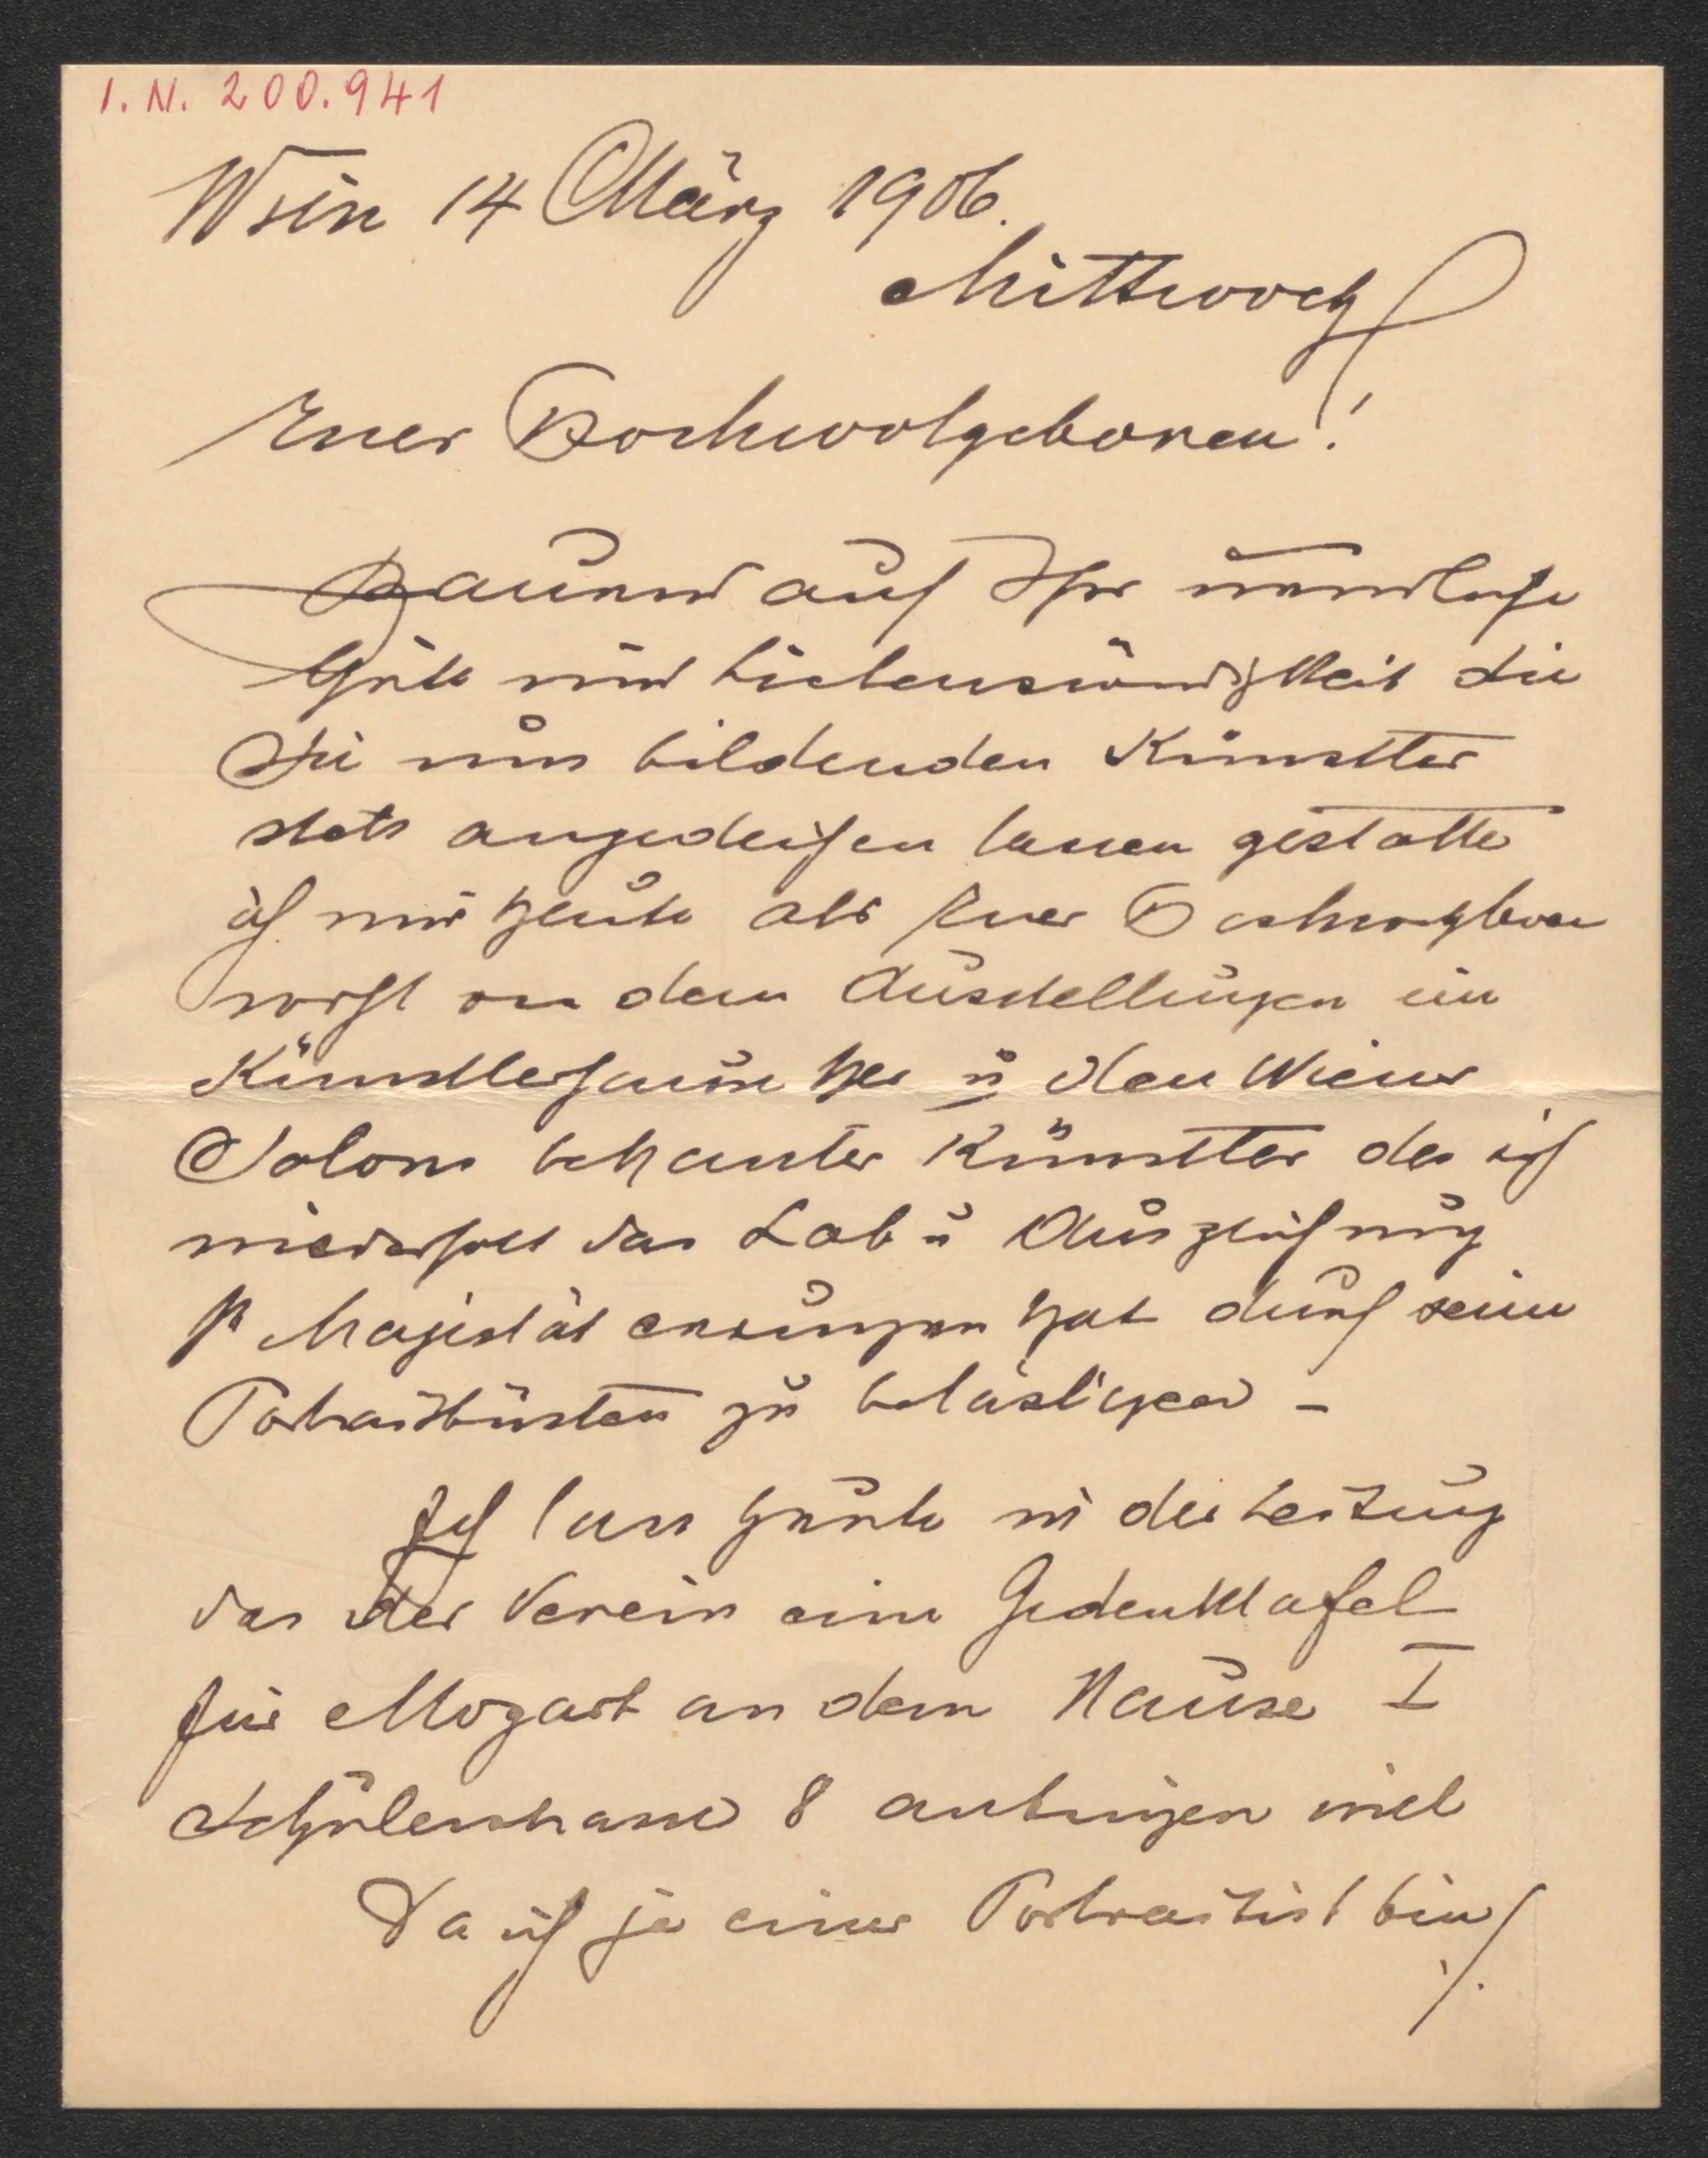 I. N. 200.941
Wien 14 März 1906.
Mittwoch
Euer Hochwolgeboren!
Bauend auf Ihre unendliche
Güte und Liebenswürdigkeit die
Sie uns bildenden Künstler
stets angedeihen lassen gestatte
ich mir heute als Euer Hochwolgboren
wohl von den Ausstellungen im
Künstlerhause her u den Wiener
Salons bekannter Künstler der ich
wiederholt das Lob u Auszeichnung
Sr Majestät errungen hat durch seine
Portraitbüsten zu belästigen –
Ich las heute in der Zeitung
das der Verein eine Gedenktafel
für Mozart an dem Hause I
Schulerstrasse 8 anbringen will
Da ich ja einer Portraitist bin
./.